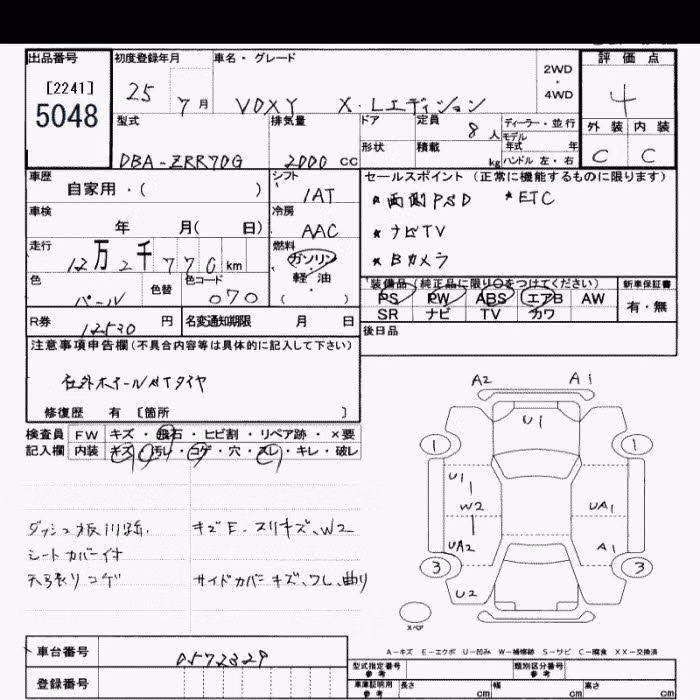 出品番号
[2241]
5048
初度登録年月
25 7月
車名・グレード
VOXY X・Lエディション
2WD
・
4WD
評価点
4
外装 内装
C C
型式
DBA-ZRR70G
排気量
2000 cc
ドア
形状
定員
8人
積載
kg
ディーラー・並行
モデル
年式 年
ハンドル 左・右
車歴
自家用・( )
シフト
IAT
セールスポイント (正常に機能するものに限ります)
両側PSD *ETC
* ナビTV
* Bカメラ
車検
年 月( 日)
冷房
AAC
走行
12万2千770km
燃料
ガソリン
・
軽・油
( )
色
パール
色替
色コード
070
装備品 (純正品に限り○をつけてください)
PS PW ABS エアB AW
SR ナビ TV カワ
新車保証書
有・無
R券
12530円
名変通知期限 月 日
後日品
注意事項申告欄(不具合内容等は具体的に記入して下さい)
社外ホイールMTタイヤ
修復歴 有 [箇所 ]
検査員
記入欄
FW キズ・飛石・ヒビ割・リペア跡・×要
内装 キズ・汚レ・コゲ・穴・スレ・キレ・破レ
キズE・スリキズ、W2
シートカバー付
天張りコゲ
サイドカバーキズ、ワレ、曲り
A2 A1
U1
1 1
U1
W2
UA1
UA2
A1
3 3
U2
スペア
A-キズ E-エクボ U-凹み W-補修跡 S-サビ C-腐食 XX-交換済
車台番号
0572329
登録番号
型式指定番号
参考
類別区分番号
参考
車庫証明用
参考
長さ cm
幅 cm
高さ cm